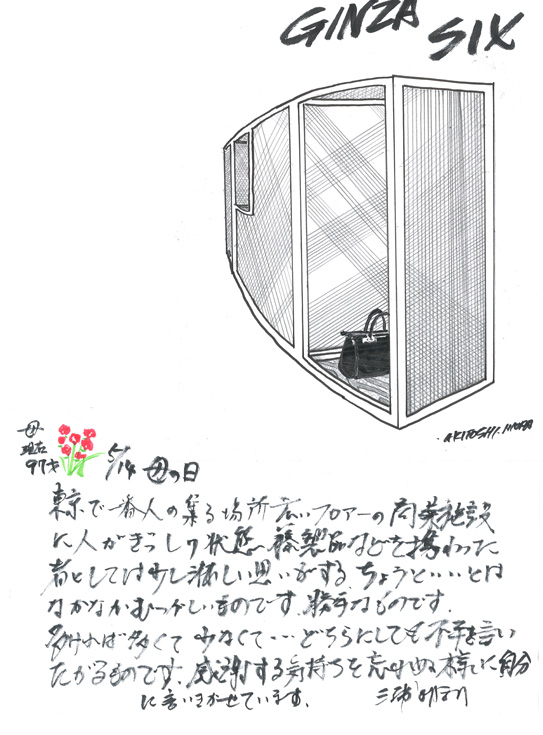 GINZA
SIX
AKITOSHI.MIURA
母
現在
97才
5/14 母の日
東京で一番人の集る場所 広いフロアーの商業施設
に人がぎっしり状態 縫製品などを携わった
者としては少し淋しい思いがする.ちょうど‥‥とは
なかなかむつかしいものです.勝手なものです.
多ければ多くて 少なくて…どちらにしても不平を言い
たがるものです.感謝する気持ちを忘れぬ様に自分
に言いきかせています.
三浦